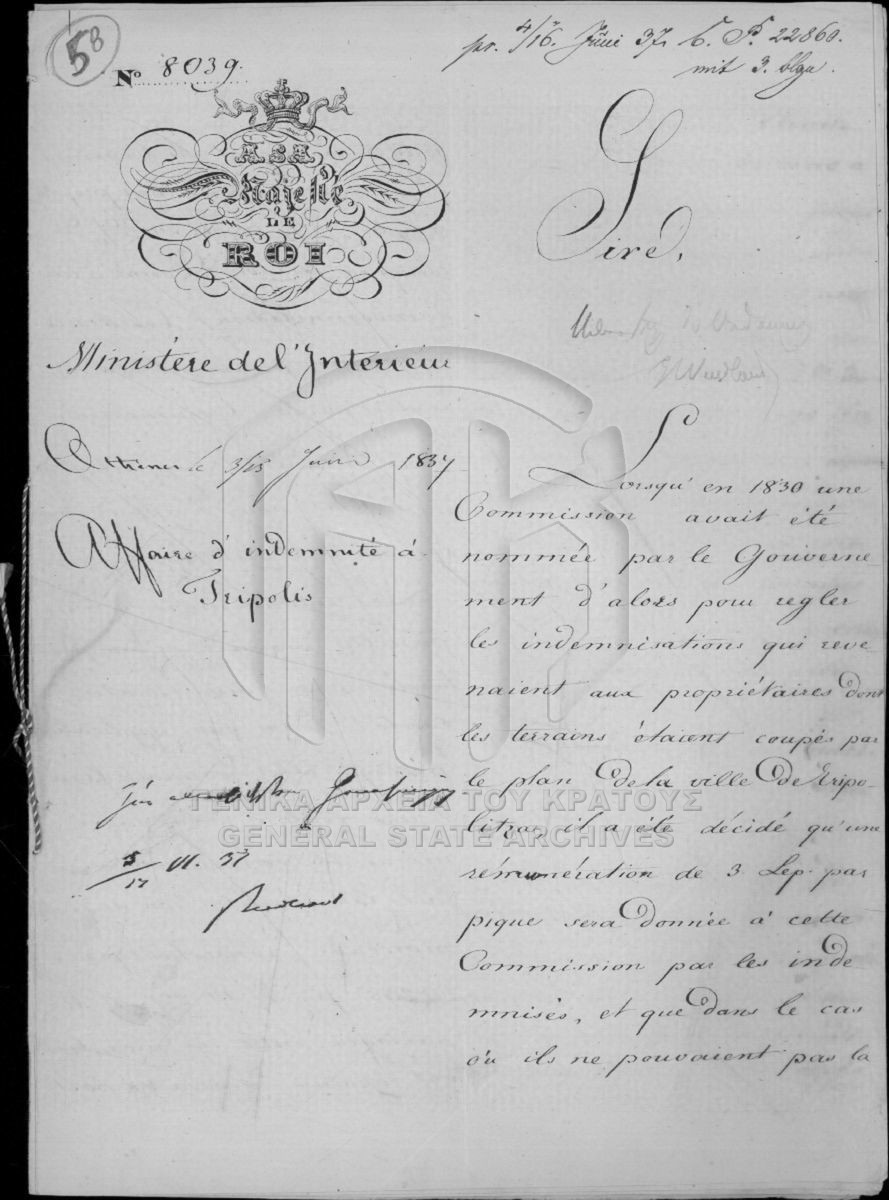 5B
Nº 8039.
pr. 4/16. Juni 37. C. P. 22860.
mit 3. blgn.
A SA
Majesté
LE
ROI
Sire,
Ministère de l'Interieur
Athènes le 3/15 Juin 1837
Affaire d'indemnité à
Tripolis
Lorsqu'en 1830 une
Commission avait été
nommée par le Gouverne
ment d'alors pour regler
les indemnisations qui reve
naient aux propriétaires dont
les terrains étaient coupés par
le plan de la ville de Tripo-
litza, il a été décidé qu'une
rémunération de 3 Lep. par
pique sera donnée à cette
Commission par les inde
mnisés, et que dans le cas
où ils ne pouvaient pas la
5/17 VI. 37
ΓΕΝΙΚΑ ΑΡΧΕΙΑ ΤΟΥ ΚΡΑΤΟΥΣ
GENERAL STATE ARCHIVES